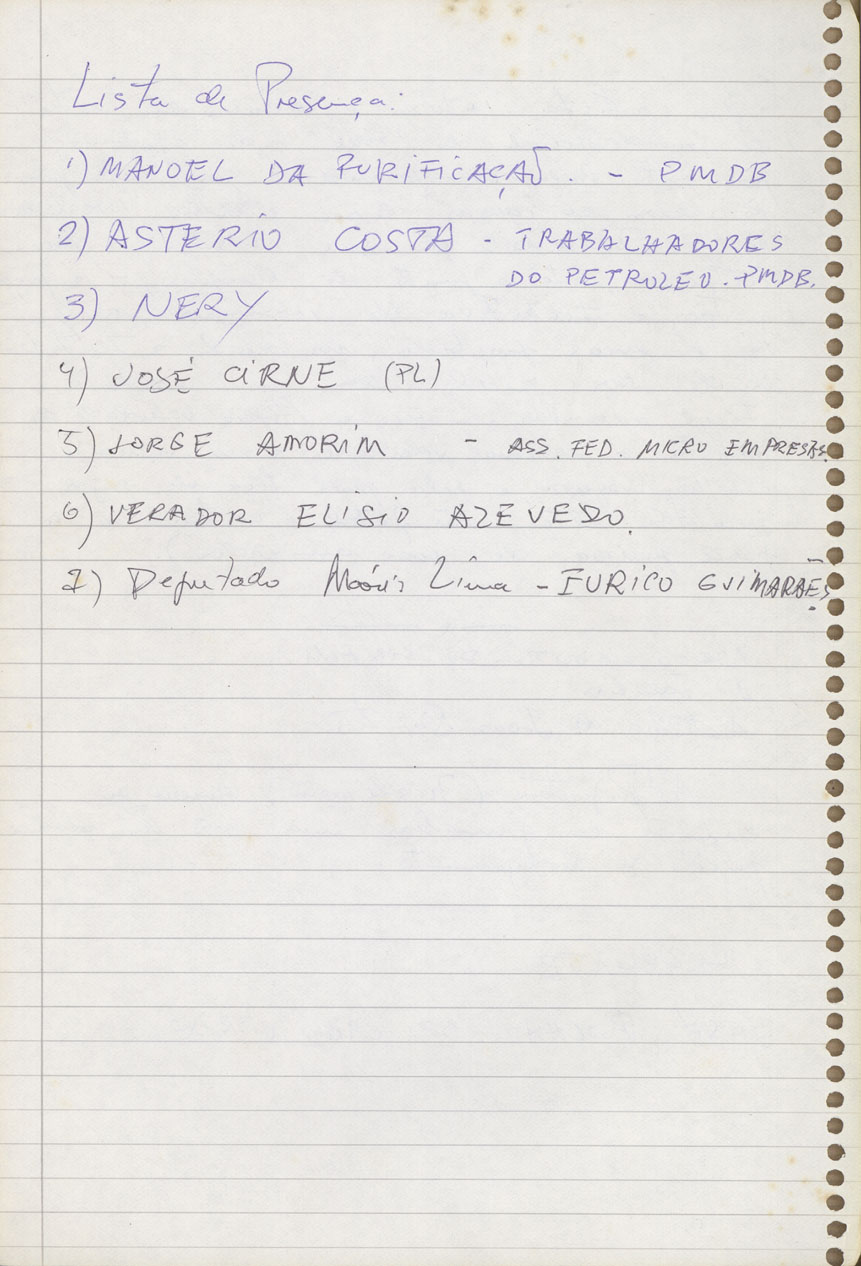 Lista de Presença:
1) MANOEL DA PURIFICAÇÃO. - PMDB
2) ASTERIO COSTA - TRABALHADORES
DO PETROLEO. PMDB.
3) NERY
4) JOSÉ CIRNE (PL)
5) JORGE AMORIM - ASS. FED. MICRO EMPRESAS
6) VERADOR ELISIO AZEVEDO.
7) Deputado Lima - EURICO GUIMARÃES